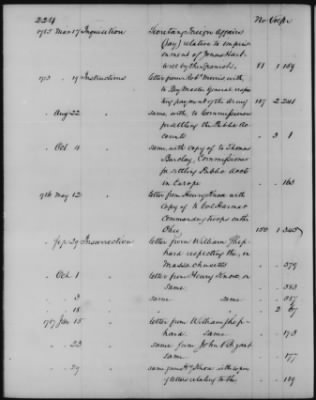 2224 No Vol p
1785 Mar 17 Inquisition Secretary Foreign Affairs
(Jay) relative to imprison
ment of Jonas Hart
well by the Spanish. 81 1 189
1783 " 17 Instructions letter from Robt Morris with
to Pay Master General respec
ting payment of the Army 137 2 241
" Aug 22 " same, with to Commissioner
for settling the Public Ac
counts " 3 1
" Oct 4 " same, with copy of to Thomas
Barclay, Commissioner
for settling Public Accts
in Europe " " 163
1786 May 12 " letter from Henry Knox with
copy of to Col Harmar
Commanding troops on the
Ohio, 150 1 345
" Sep 29 Insurrection letter from William Shep
hard respecting the, in
Massachusetts " " 379
" Oct 1 " letter from Henry Knox on
same " " 383
" 3 " same same " " 387
" 18 " " " " 2 67
1787 Jan 15 " letter from William Shep
hard same " " 173
" 23 " same from John Bryant
same " " 177
" 29 " same from Hy Knox with copies
of letters relating to the " " 189